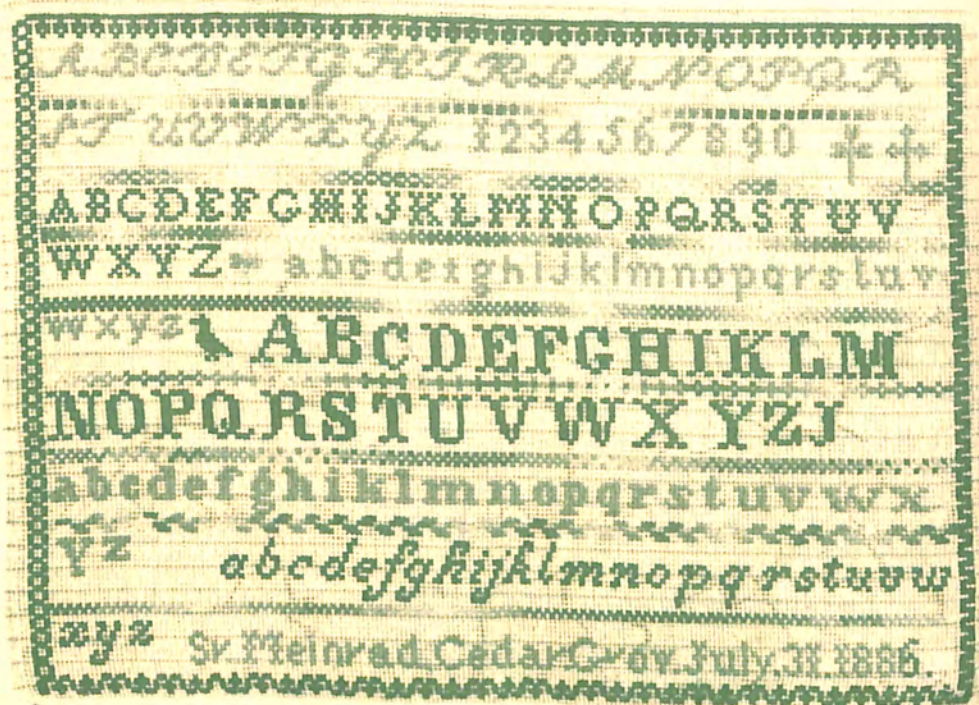 A B C D E F G H I K L M N O P Q R
S T U V W X Y Z 1 2 3 4 5 6 7 8 9 0
A B C D E F G H I J K L M N O P Q R S T U V
W X Y Z a b c d e f g h i j k l m n o p q r s t u v
w x y z A B C D E F G H I K L M
N O P Q R S T U V W X Y Z J
a b c d e f g h i k l m n o p q r s t u v w x
y z a b c d e f g h i j k l m n o p q r s t u v w
x y z Sr. Meinrad. Cedar Grov. July. 31. 1886.